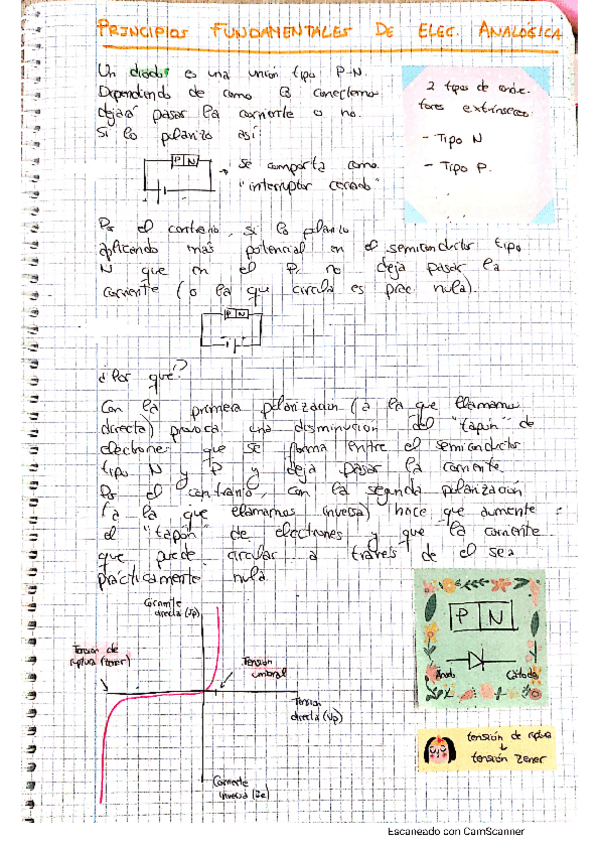 PRINCIPIOS FUNDAMENTALES DE ELEC. ANALÓGICA
Un diodo es una unión tipo P-N.
Dependiendo de como lo conectemos
dejará pasar la corriente o no.
Si lo polarizo así:
P N
→ se comporta como
"interruptor cerrado"
2 tipos de
tores extrínsecos:
- Tipo N
- Tipo P.
Por el contrario, si lo polarizo
aplicando más potencial en el semiconductor tipo
N que en el P, no deja pasar la
corriente (o la que circula es prác. nula).
P N
¿Por qué?
Con la primera polarización (a la que llamamos
directa) provoca una disminución del "tapón" de
electrones que se forma entre el semiconductor
tipo N y P y deja pasar la corriente.
Por el contrario, con la segunda polarización
(a la que llamamos inversa) hace que aumente
el "tapón" de electrones y que la corriente
que puede circular a través de él sea
prácticamente nula.
Corriente
directa
Tensión de
ruptura (zener)
Tensión
umbral
Tensión
directa
Corriente
inversa
P N
Ánodo Cátodo
tensión de ruptura
↓
tensión zener
Escaneado con CamScanner